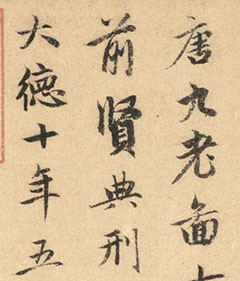 唐九老畵
前賢典刑
大德十年五